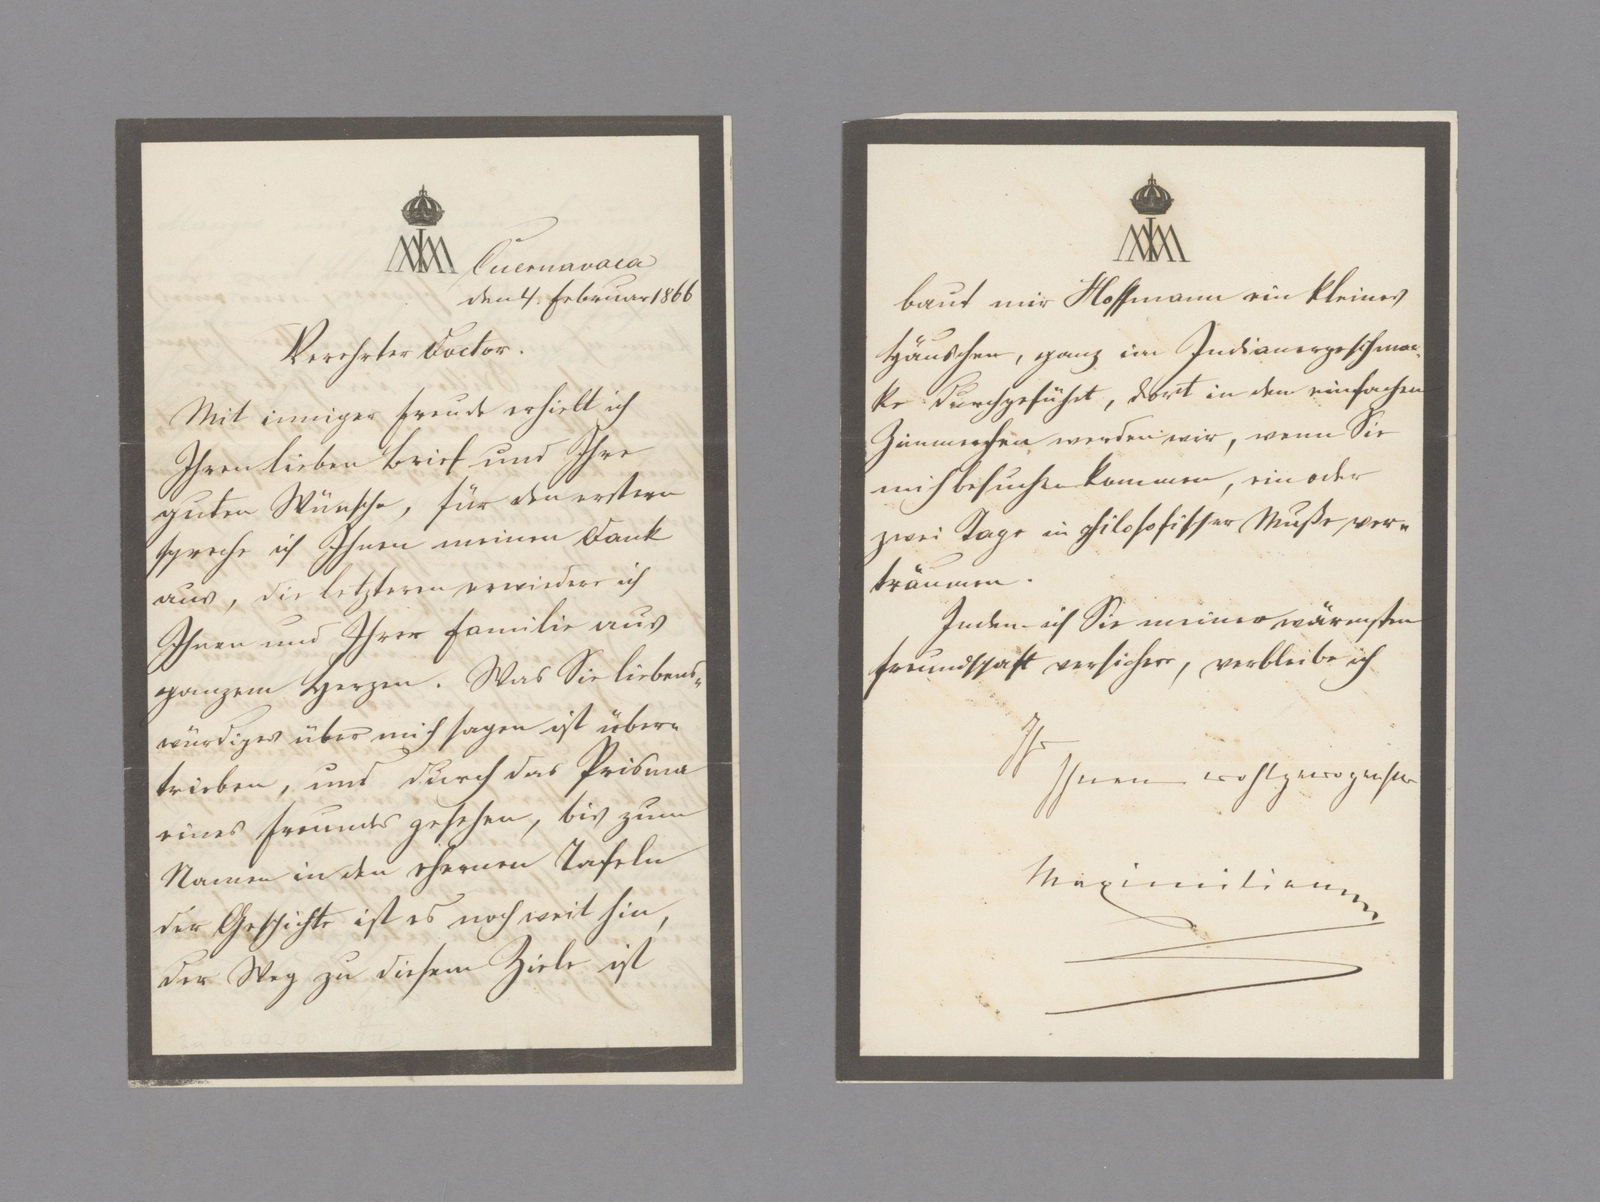 MIM
Cuernavaca
den 4. Februar 1866
Verehrter Doctor.
Mit inniger Freude erhielt ich
Ihren lieben Brief und Ihre
guten Wünsche, für den erstern
spreche ich Ihnen meinen Dank
aus, die letzteren erwiedere ich
Ihnen und Ihrer Familie aus
ganzem Herzen. Was Sie liebens=
würdiges über mich sagen ist über=
trieben, und durch das Prisma
eines Freundes gesehen, bis zum
Namen in den ehernen Tafeln
der Geschichte ist es noch weit hin,
der Weg zu diesem Ziele ist
MIM
baut mir Hoffmann ein kleines
Häuschen, ganz im Indianergeschmac=
ke durchgeführt, dort in den einfachen
Zimmerchen werden wir, wenn Sie
mich besuchen kommen, ein oder
zwei Tage in philosofischer Muße ver=
träumen.
Indem ich Sie meiner wärmsten
Freundschaft versichere, verbleibe ich
Ihr
Ihnen wohlgewogenster
Maximilian